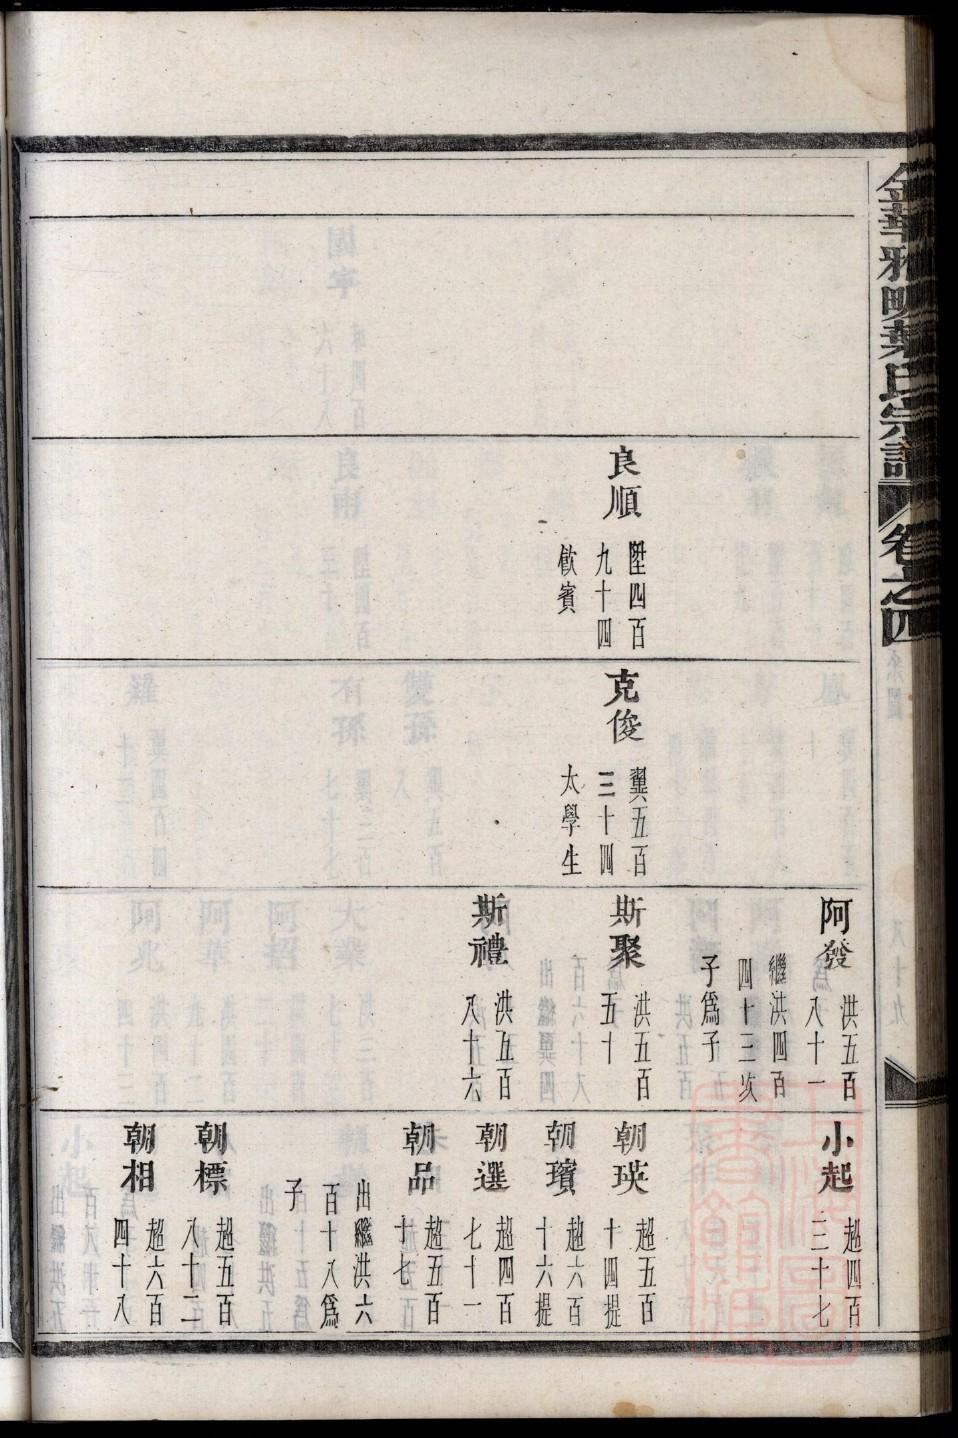 金華雅畈葉氏宗譜
卷之四
良順
陞四百
九十四
飲賓
克俊
翼五百
三十四
太學生
阿發
洪五百
八十一
繼洪四百
四十三次
子爲子
斯聚
洪五百
五十
斯禮
洪五百
八十六
小起
超四百
三十七
朝瑛
超五百
十四提
朝璸
超六百
十六提
朝選
超四百
七十一
朝品
超五百
十七
出繼洪六
百十八爲
子
朝標
超五百
八十二
朝相
超六百
四十八